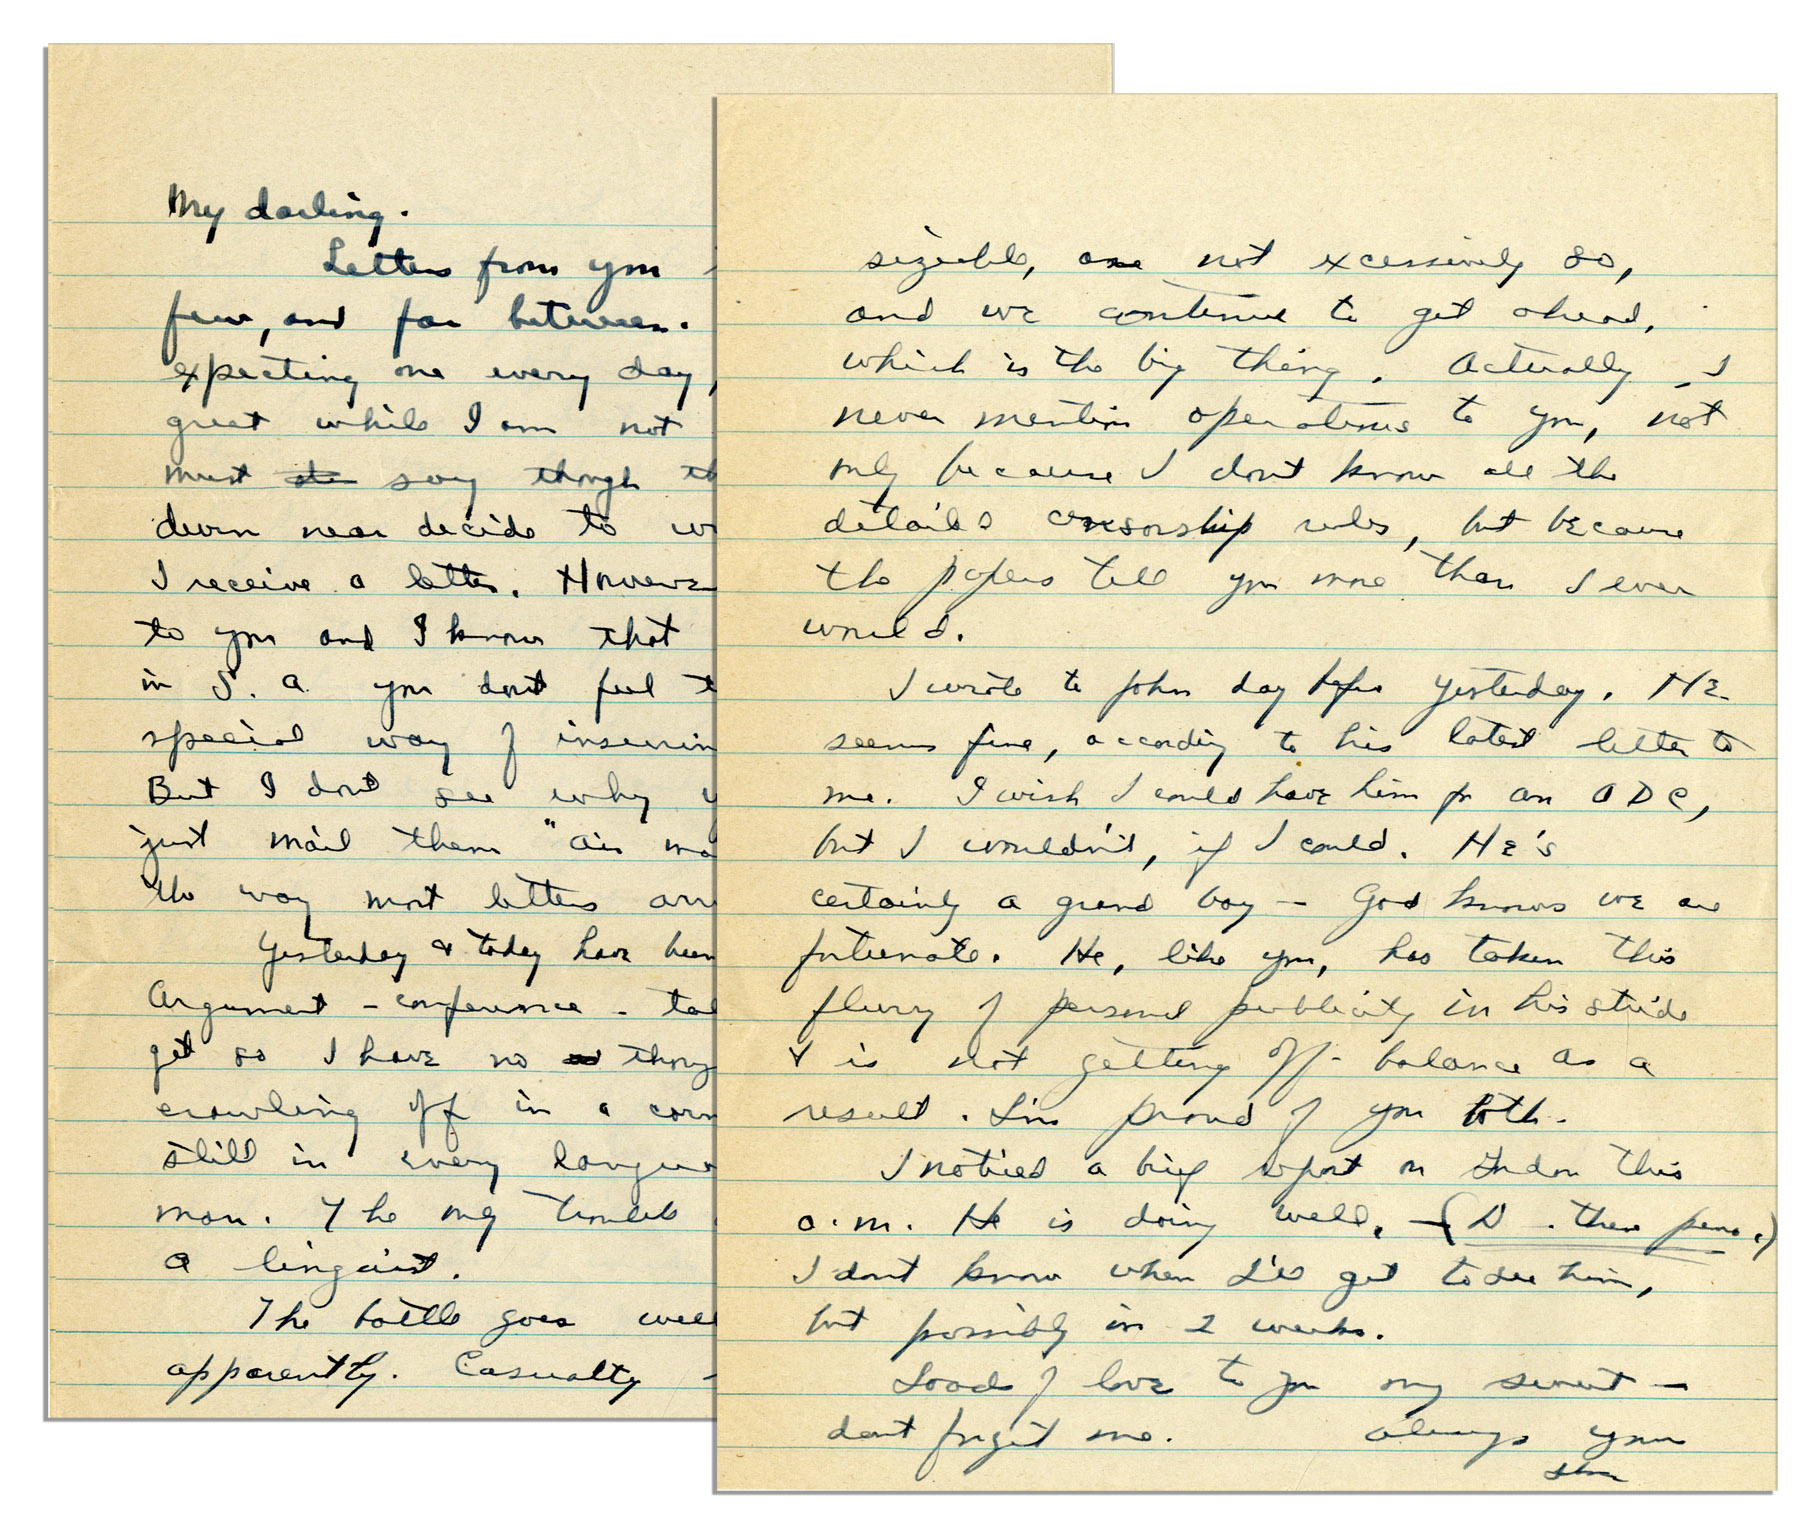 My darling.
Letters from you
few, and far between.
expecting one every day,
great while I am not
must say though
near decide to
I receive a letter. However
to you and I know that
in S. A. you don't feel
special way of
But I don't see why
just mail them "air
the way most letters
Yesterday & today have been
Argument - conference -
get so I have no
crawling off in a
still in every
man. The only trouble
a linguist.
The battle goes well
apparently. Casualty
sizeable, not excessively so,
and we continue to get ahead,
which is the big thing. Actually I
never mention operations to you, not
only because I don't know all the
details censorship rules, but because
the papers tell you more than I ever
would.
I wrote to John day before yesterday. He
seems fine, according to his latest letter to
me. I wish I could have him for an ADC,
but I wouldn't, if I could. He's
certainly a grand boy - God knows we are
fortunate. He, like you, has taken this
flurry of personal publicity in his stride
& is not getting off-balance as a
result. I'm proud of you both.
I noticed a brief report on this
a.m. He is doing well. - (D - these pens.)
I don't know when I'll get to see him,
but possibly in 2 weeks.
Loads of love to you my sweet -
don't forget me. Always your